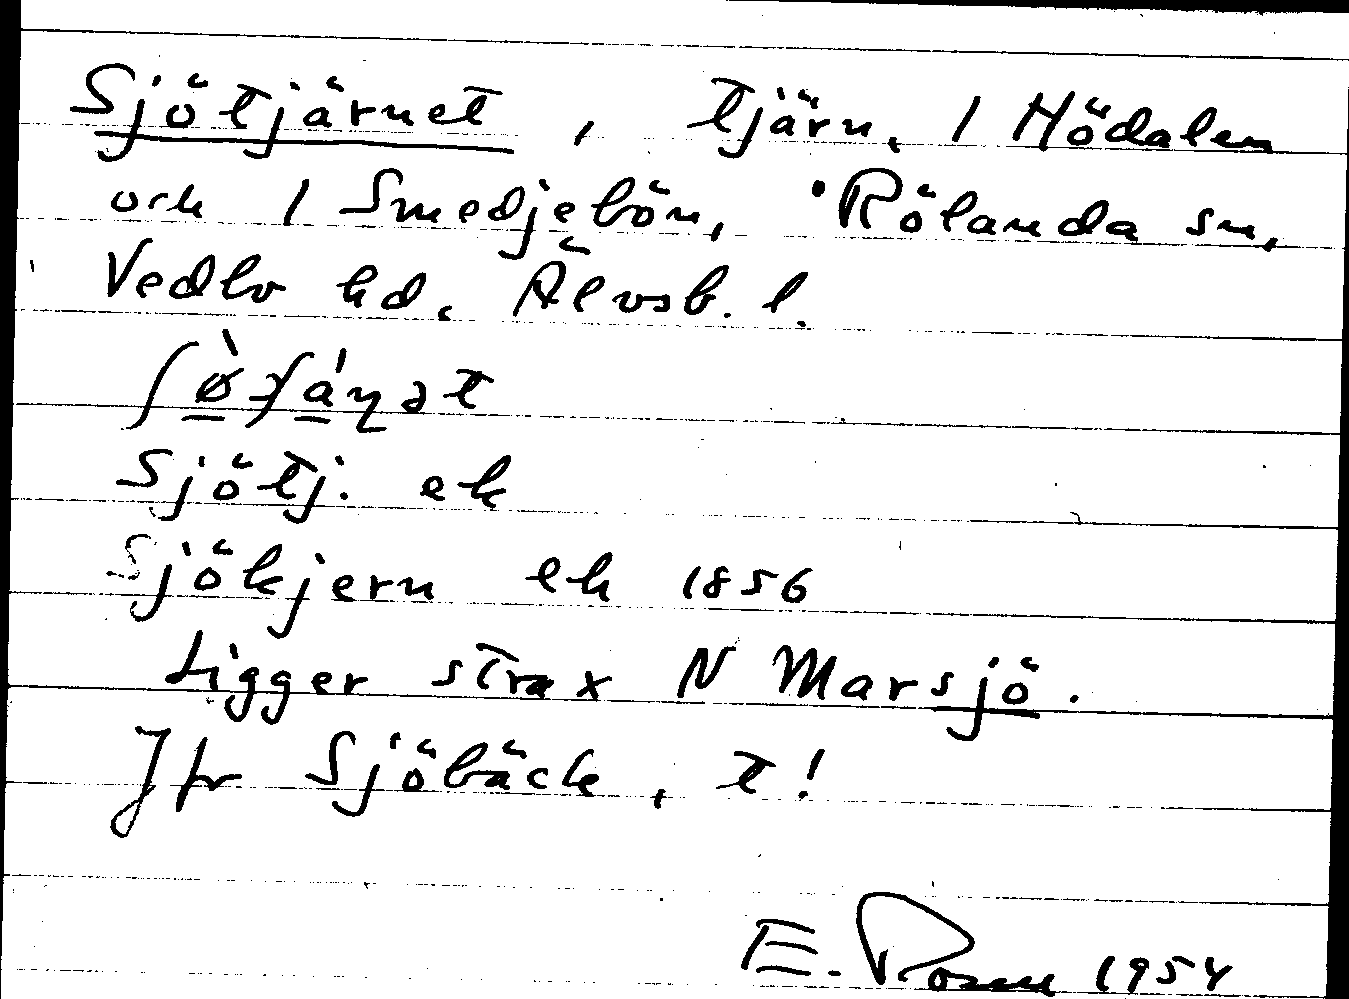 Sjötjärnet, tjärn, 1 Hödalen
och 1 Smedjebön, Rölanda sn,
Vedbo hd. Älvsb. l.
Sjötj. ek
Sjökjern ek 1856
Ligger strax N Marsjö.
Jfr Sjöbäck, t!
E. Rosell 1954